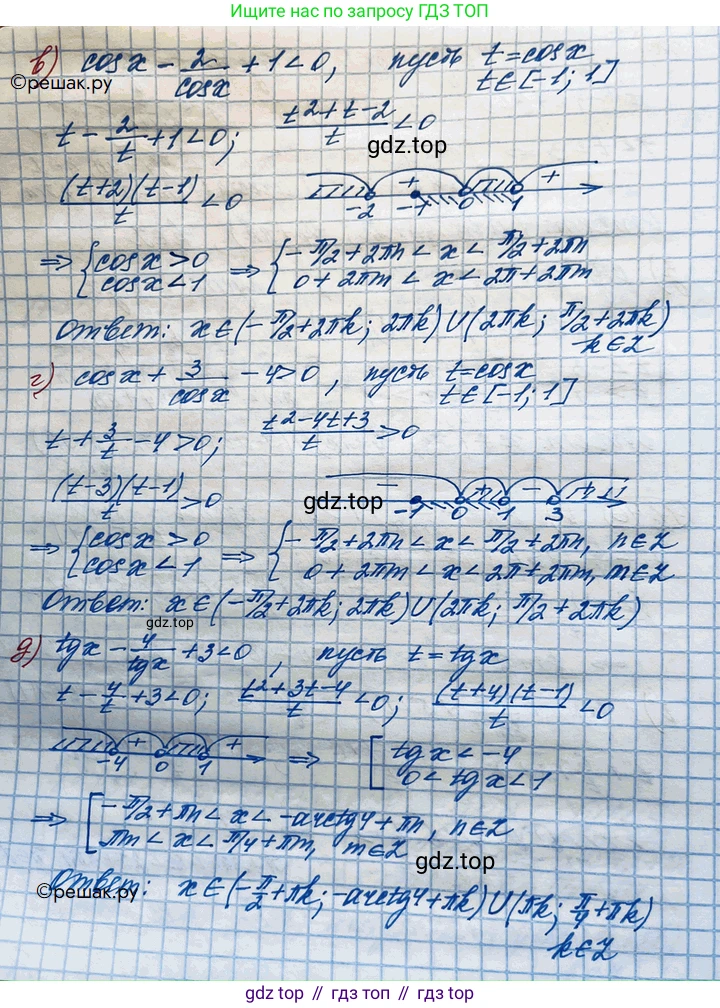 Ищите нас по запросу ГДЗ ТОП
в) cosx - 2/cosx + 1 < 0, пусть t = cosx
©решак.ру t ∈ [-1; 1]
t - 2/t + 1 < 0; (t² + t - 2)/t < 0
gdz.top
(t+2)(t-1)/t < 0
+ +
-2 -1 0 1
⇒ { cosx > 0 ⇒ { -π/2 + 2πn < x < π/2 + 2πn
cosx < 1 0 + 2πm < x < 2π + 2πm
Ответ: x ∈ (-π/2 + 2πk; 2πk) ∪ (2πk; π/2 + 2πk)
k ∈ Z
г) cosx + 3/cosx - 4 > 0, пусть t = cosx
t ∈ [-1; 1]
t + 3/t - 4 > 0; (t² - 4t + 3)/t > 0
(t-3)(t-1)/t > 0
- + - +
gdz.top
-1 0 1 3
⇒ { cosx > 0 ⇒ { -π/2 + 2πn < x < π/2 + 2πn, n ∈ Z
cosx < 1 0 + 2πm < x < 2π + 2πm, m ∈ Z
Ответ: x ∈ (-π/2 + 2πk; 2πk) ∪ (2πk; π/2 + 2πk)
gdz.top
д) tgx - 4/tgx + 3 < 0, пусть t = tgx
t - 4/t + 3 < 0; (t² + 3t - 4)/t < 0; (t+4)(t-1)/t < 0
+ +
-4 0 1
⇒ [ tgx < -4
0 < tgx < 1
⇒ [ -π/2 + πn < x < -arctg4 + πn, n ∈ Z
πm < x < π/4 + πm, m ∈ Z
gdz.top
Ответ: x ∈ (-π/2 + πk; -arctg4 + πk) ∪ (πk; π/4 + πk)
©решак.ру
k ∈ Z
gdz top // гдз топ // gdz top